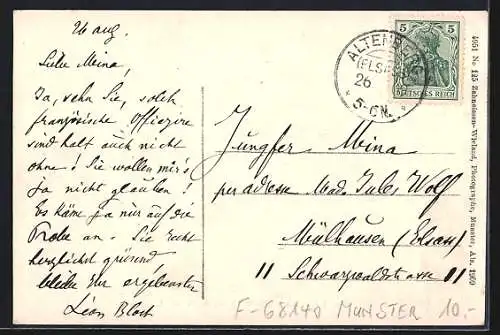 26 aug.
Liebe Meina,
Ja, sehn Sie, solch
französische Offizire
sind halt auch nicht
ohne! Sie wollen mir's
ja nicht glauben!
Es käme ja nur auf die
Probe an. Sie recht
herzlichst grüssend
bleibe Ihr ergebenster
Léon Bloch
ALTENBERG
(ELSASS)
26
5-6N.
5 5
DEUTSCHES REICH
Jungfer Meina
per adresse Mad. Jules Wolf
Mülhausen (Elsass)
11 Schwarzwaldstrasse 11
4051 No 125 Zahneissen-Wieland, Photographe, Munster, Als. 1909
F-68140 MUNSTER 10.-